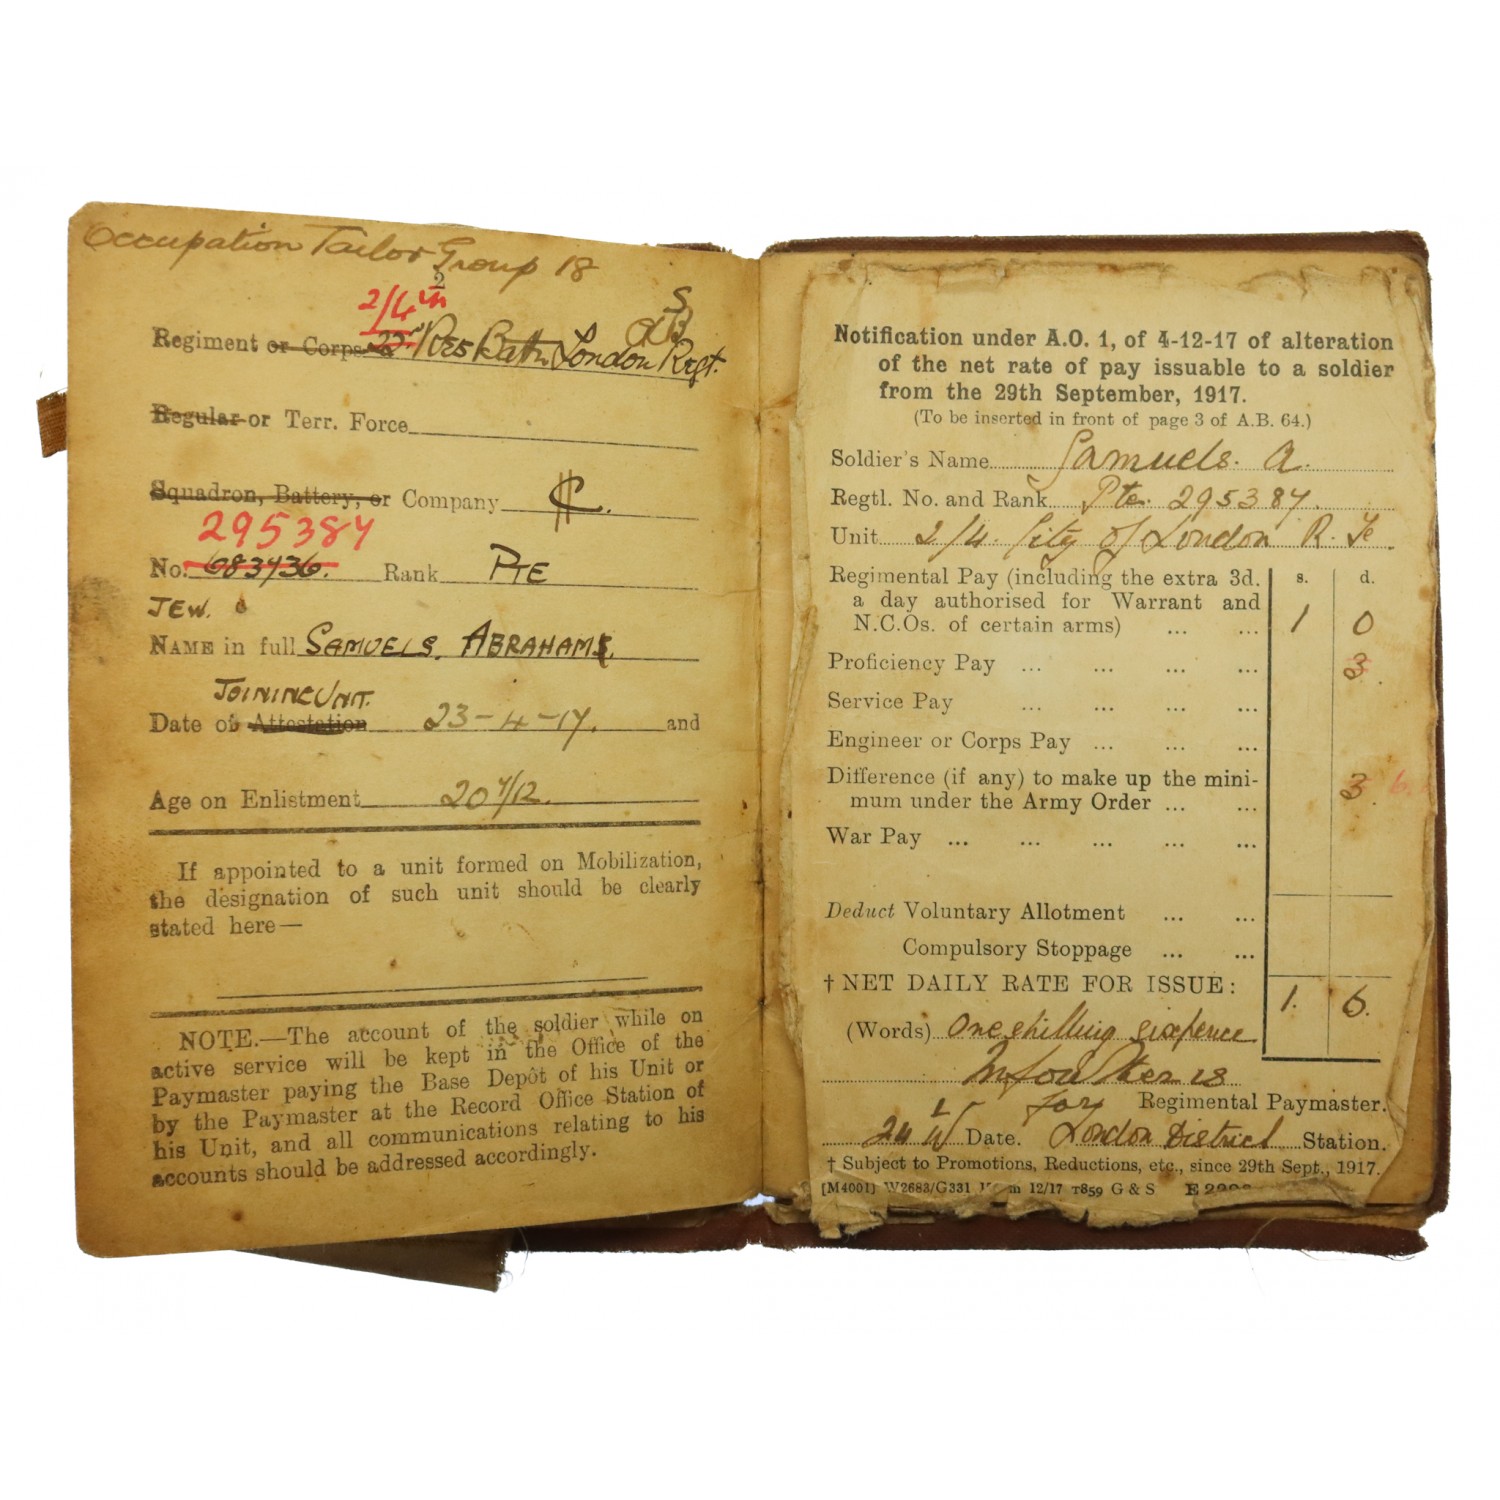 Occupation Tailor Group 18
2
2/4th S
Regiment or Corps 22nd Res Battn London Regt.
Regular or Terr. Force
Squadron, Battery, or Company C.
295387
No. 683736. Rank PTE
JEW.
NAME in full SAMUELS. ABRAHAM.
JOINING UNIT.
Date of Attestation 23-4-17. and
Age on Enlistment 20 7/12.
If appointed to a unit formed on Mobilization,
the designation of such unit should be clearly
stated here—
NOTE.—The account of the soldier while on
active service will be kept in the Office of the
Paymaster paying the Base Depôt of his Unit or
by the Paymaster at the Record Office Station of
his Unit, and all communications relating to his
accounts should be addressed accordingly.
Notification under A.O. 1, of 4-12-17 of alteration
of the net rate of pay issuable to a soldier
from the 29th September, 1917.
(To be inserted in front of page 3 of A.B. 64.)
Soldier's Name Samuels. A.
Regtl. No. and Rank Pte. 295387.
Unit 2/4. City of London R. Fs.
Regimental Pay (including the extra 3d. s. d.
a day authorised for Warrant and
N.C.Os. of certain arms) ... ... 1 0
Proficiency Pay ... ... ... ... 3.
Service Pay ... ... ... ...
Engineer or Corps Pay ... ... ...
Difference (if any) to make up the mini-
mum under the Army Order ... ... 3. 6.
War Pay ... ... ... ... ...
Deduct Voluntary Allotment ... ...
Compulsory Stoppage ... ...
† NET DAILY RATE FOR ISSUE: 1. 6.
(Words) One shilling sixpence
for Regimental Paymaster.
Date. London District Station.
† Subject to Promotions, Reductions, etc., since 29th Sept., 1917.
[M4001] W2683/G331 12/17 T859 G & S